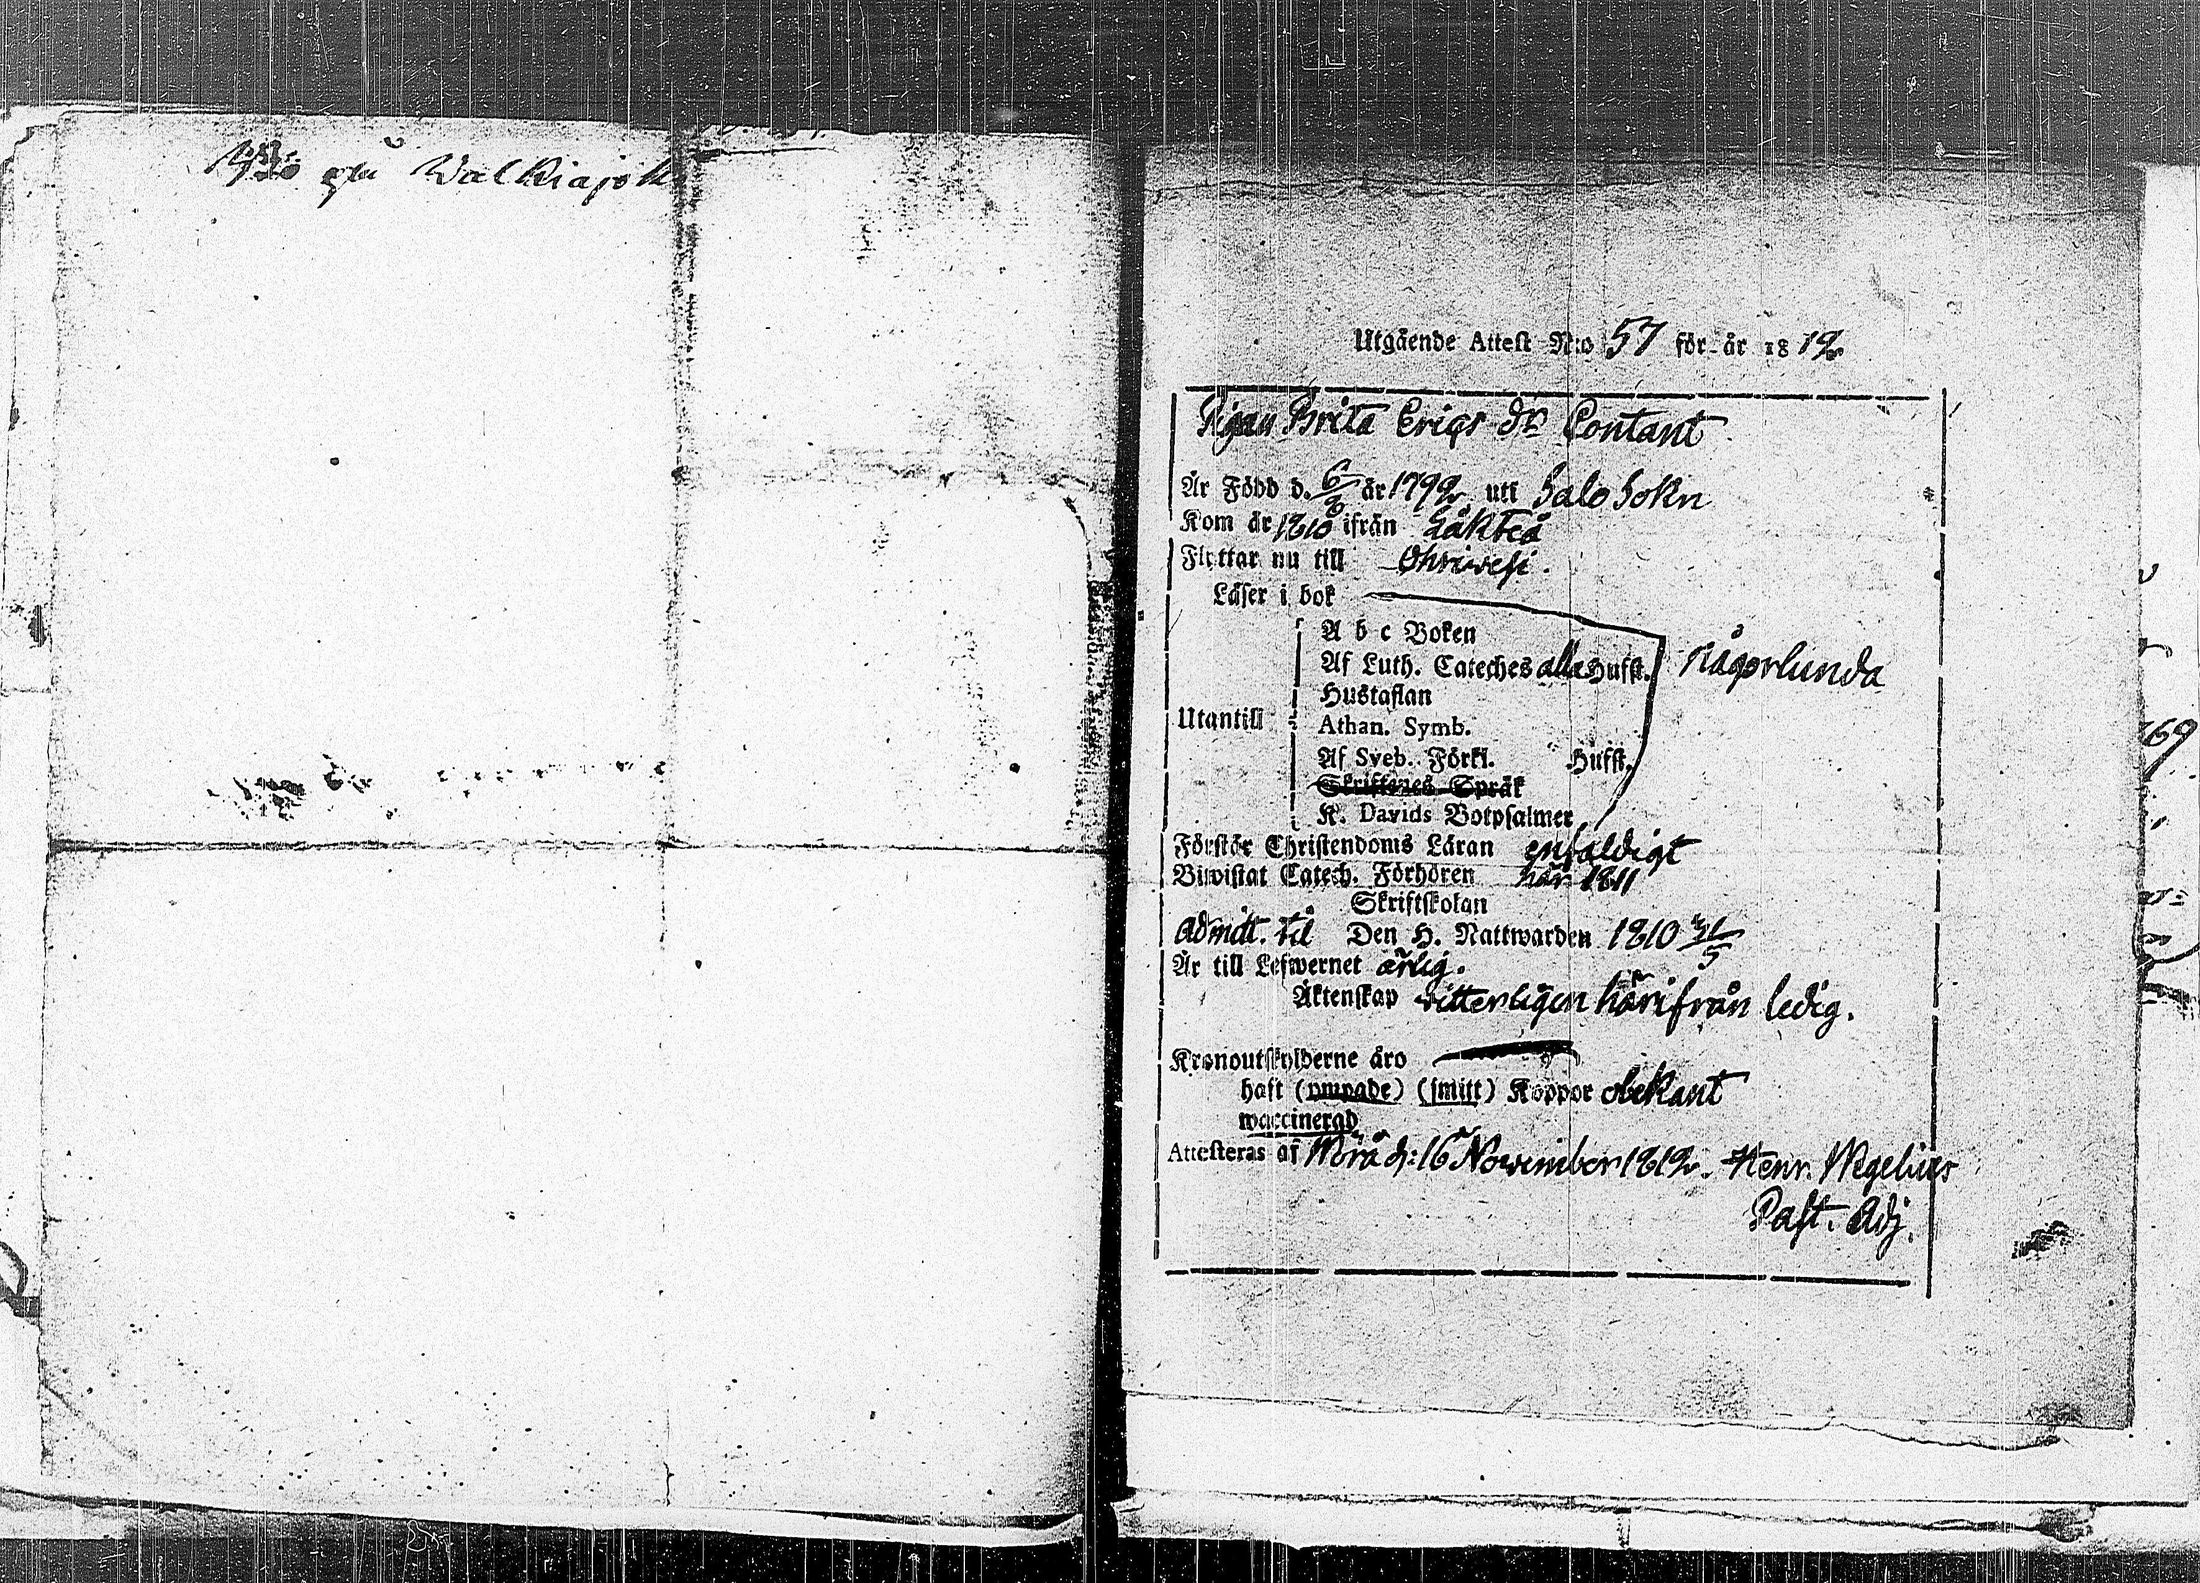 Walkiajok
Utgående Attest N:o 57 för år 1812
Pigan Brita Erigs dr Contant
Är Född d. 6/2 år 1792 uti Salo Sokn
Kom år 1810 ifrån Låkteå
Flyttar nu till Ohriwesi.
Läser i bok
A b c Boken
Af Luth. Cateches alla Hufst. någorlunda
Hustaflan
Utantill Athan. Symb.
Af Sveb. Förkl. Hufst.
Skriftenes Språk
K. Davids Botpsalmer
Förstår Christendoms Läran enfaldigt
Biwistat Catech. Förhören här 1811
Skriftskolan
Admitt. til Den H. Nattwarden 1810 31/5
Är till Lefwernet ärlig.
Äktenskap witterligen härifrån ledig.
Kronoutskylderne äro
haft (ympade) (smitt) Koppor obekant
waccinerad
Attesteras af Wörå d: 16 November 1812. Henr. Wegelius
Past. Adj.
69